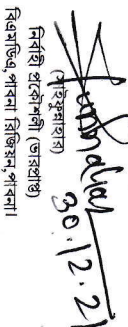 30.12.21
নির্বাহী প্রকৌশলী (ভারপ্রাপ্ত)
বিএমডিএ, পাবনা রিজিয়ন, পাবনা।